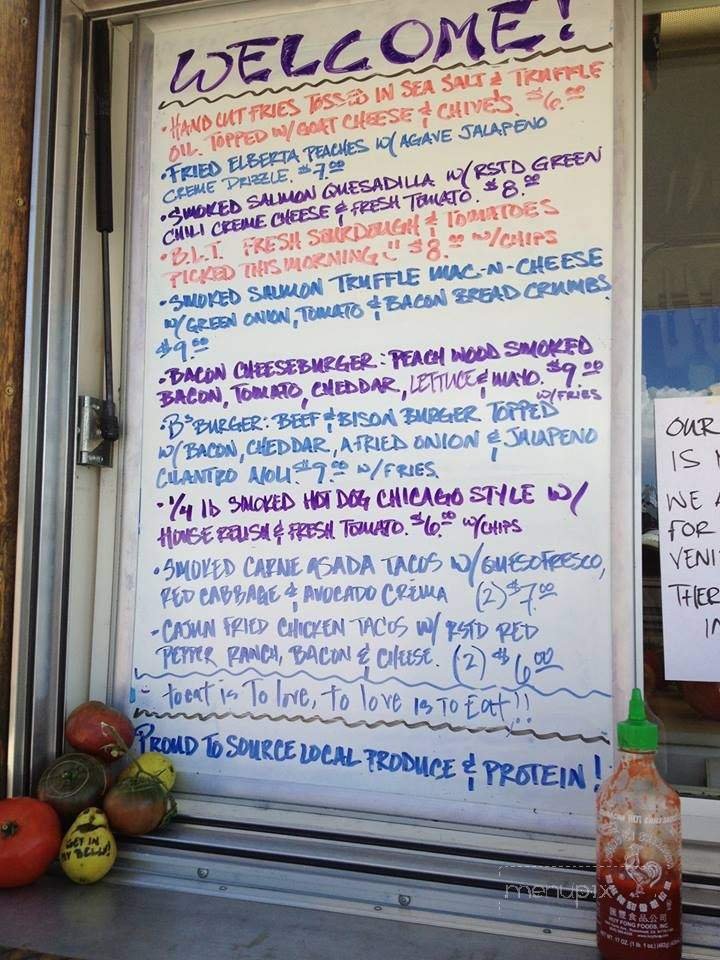 WELCOME!
• HAND CUT FRIES TOSSED IN SEA SALT & TRUFFLE
OIL. TOPPED W/ GOAT CHEESE & CHIVES. $6.00
• FRIED ELBERTA PEACHES W/ AGAVE JALAPENO
CREME DRIZZLE. $7.00
• SMOKED SALMON QUESADILLA W/ RSTD GREEN
CHILI CREME CHEESE & FRESH TOMATO. $8.00
• B.L.T. FRESH SOURDOUGH & TOMATOES
PICKED THIS MORNING!! $8.00 W/ CHIPS
• SMOKED SALMON TRUFFLE MAC-N-CHEESE
W/ GREEN ONION, TOMATO & BACON BREAD CRUMBS.
$9.00
• BACON CHEESEBURGER: PEACH WOOD SMOKED
BACON, TOMATO, CHEDDAR, LETTUCE & MAYO. $9.00
W/ FRIES
• B³ BURGER: BEEF & BISON BURGER TOPPED
W/ BACON, CHEDDAR, A FRIED ONION & JALAPENO
CILANTRO AIOLI. $9.00 W/ FRIES.
• 1/4 lb SMOKED HOT DOG CHICAGO STYLE W/
HOUSE RELISH & FRESH TOMATO. $6.00 W/ CHIPS
• SMOKED CARNE ASADA TACOS W/ QUESO FRESCO,
RED CABBAGE & AVOCADO CREMA (2) $7.00
• CAJUN FRIED CHICKEN TACOS W/ RSTD RED
PEPPER RANCH, BACON & CHEESE. (2) $6.00
to eat is To love, to love is To Eat!!
PROUD TO SOURCE LOCAL PRODUCE & PROTEIN!
GET IN
MY BELLY!
OUR
IS
WE
FOR
VENI
THER
IN
匯豐食品公司
HUY FONG FOODS, INC.
NET WT. 17 OZ. (1 lb. 1 oz.)
menupix